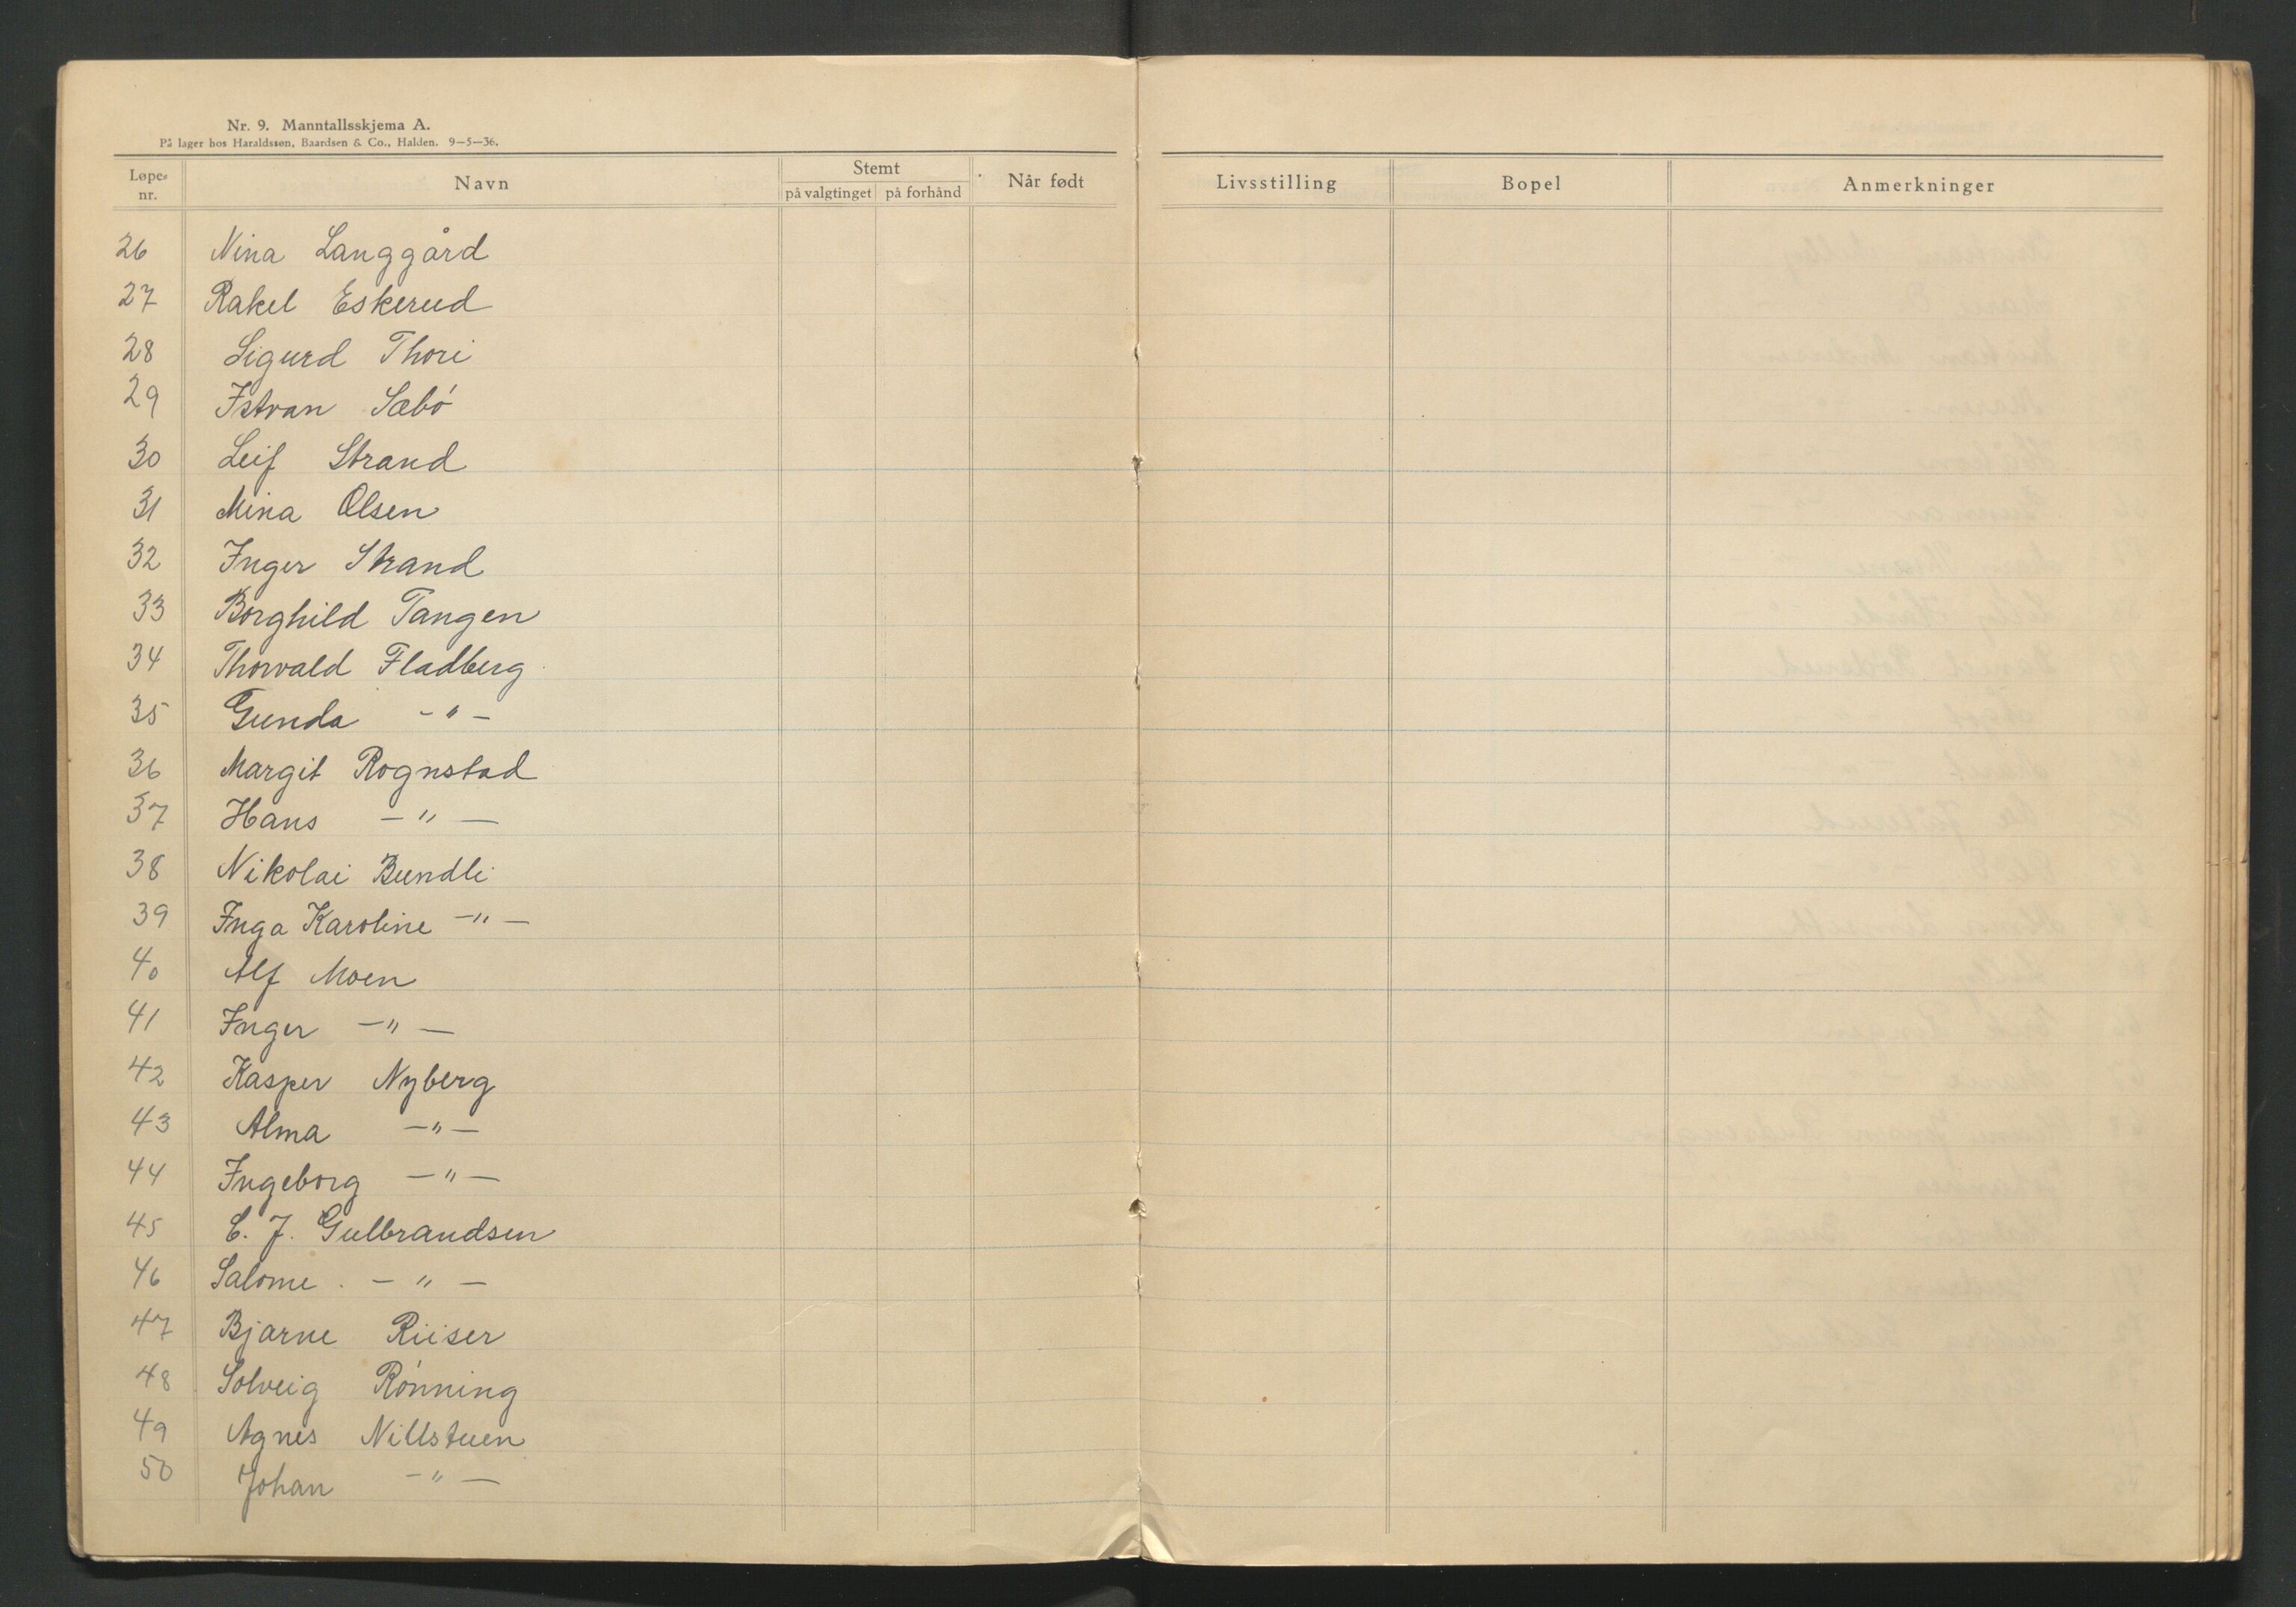 Nr. 9. Manntallsskjema A.
På lager hos Haraldssøn, Baardsen & Co., Halden. 9—5—36.
Løpe-nr. Navn Stemt på valgtinget på forhånd Når født Livsstilling Bopel Anmerkninger
26 Nina Langgård
27 Rakel Eskerud
28 Sigurd Thori
29 Istvan Sæbó
30 Leif Strand
31 Mina Olsen
32 Inger Strand
33 Borghild Tangen
34 Thorvald Fladberg
35 Gunda - " -
36 Margit Rognstad
37 Hans - " -
38 Nikolai Bundli
39 Inga Karoline - " -
40 Alf Moen
41 Inger - " -
42 Kasper Nyberg
43 Alma - " -
44 Ingeborg - " -
45 E. J. Gulbrandsen
46 Salome. - " -
47 Bjarne Riiser
48 Solveig Rónning
49 Agnes Nillstuen
50 Johan - " -